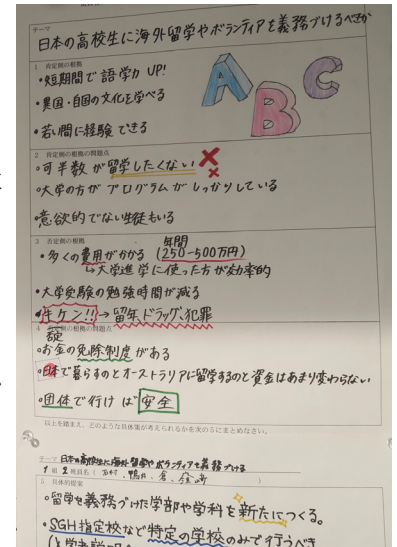 テーマ
日本の高校生に海外留学やボランティアを義務づけるべきか
1 肯定側の根拠
・短期間で語学力UP!
・異国・自国の文化を学べる
・若い間に経験できる
ABC
2 肯定側の根拠の問題点
・可半数が留学したくない
・大学の方がプログラムがしっかりしている
・意欲的でない生徒もいる
3 否定側の根拠
年間
・多くの費用がかかる(250-500万円)
↳大学進学に使った方が効率的
・大学受験の勉強時間が減る
・キケン!!→留年、ドラッグ、犯罪
4 否定側の根拠の問題点
・お金の免除制度がある
・日本で暮らすのとオーストラリアに留学するのと資金はあまり変わらない
・団体で行けば安全
以上を踏まえ、どのような具体策が考えられるかを次の5にまとめなさい。
テーマ 日本の高校生に海外留学やボランティアを義務づける
1組 2 班員名(
5 具体的提案
・留学を義務づけた学部や学科を新たにつくる。
・SGH指定校など特定の学校のみで行うべき